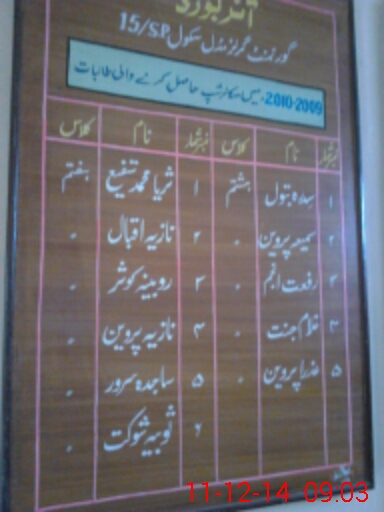 آنر بورڈ
گورنمنٹ گرلز مڈل سکول 15/SP
2010-2009ء میں سکالرشپ حاصل کرنے والی طالبات
نمبرشمار نام کلاس نمبرشمار نام کلاس
۱ سیدہ بتول ہشتم ۱ ثریا محمد شفیع ہفتم
۲ سمیعہ پروین 〃 ۲ نازیہ اقبال 〃
۳ رفعت انجم 〃 ۳ روبینہ کوثر 〃
۴ غلام جنت 〃 ۴ نازیہ پروین 〃
۵ عذرا پروین 〃 ۵ ساجدہ سرور 〃
۶ ثوبیہ شوکت 〃
11-12-14 09:03